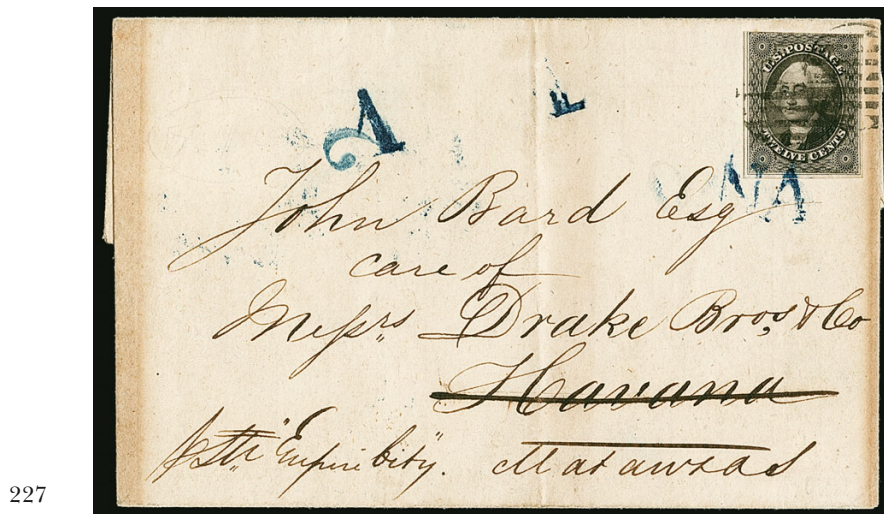 U.S. POSTAGE
TWELVE CENTS
NA
John Bard Esq
care of
Messrs Drake Bros. & Co
Havana
pr Str "Empire City". Matanzas
227